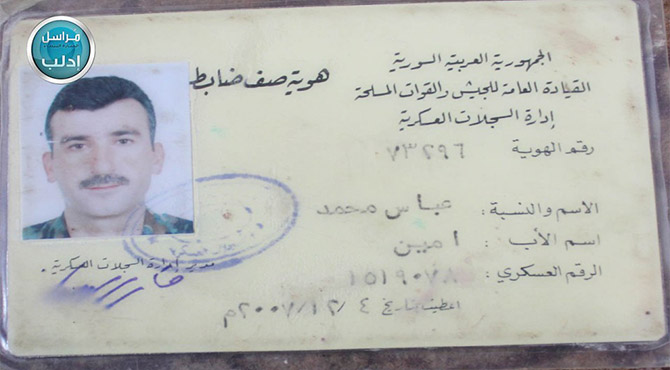 مراسل
ادلب
هوية صف ضابط
الجمهورية العربية السورية
القيادة العامة للجيش والقوات المسلحة
إدارة السجلات العسكرية
رقم الهوية ٧٣٢٩٦
الاسم والنسبة: عباس محمد
اسم الأب: امين
الرقم العسكري: ١٥١٩٠٧٨
اعطيت بتاريخ ٤ /١٢/ ٢٠٠٧م
مدير إدارة السجلات العسكرية